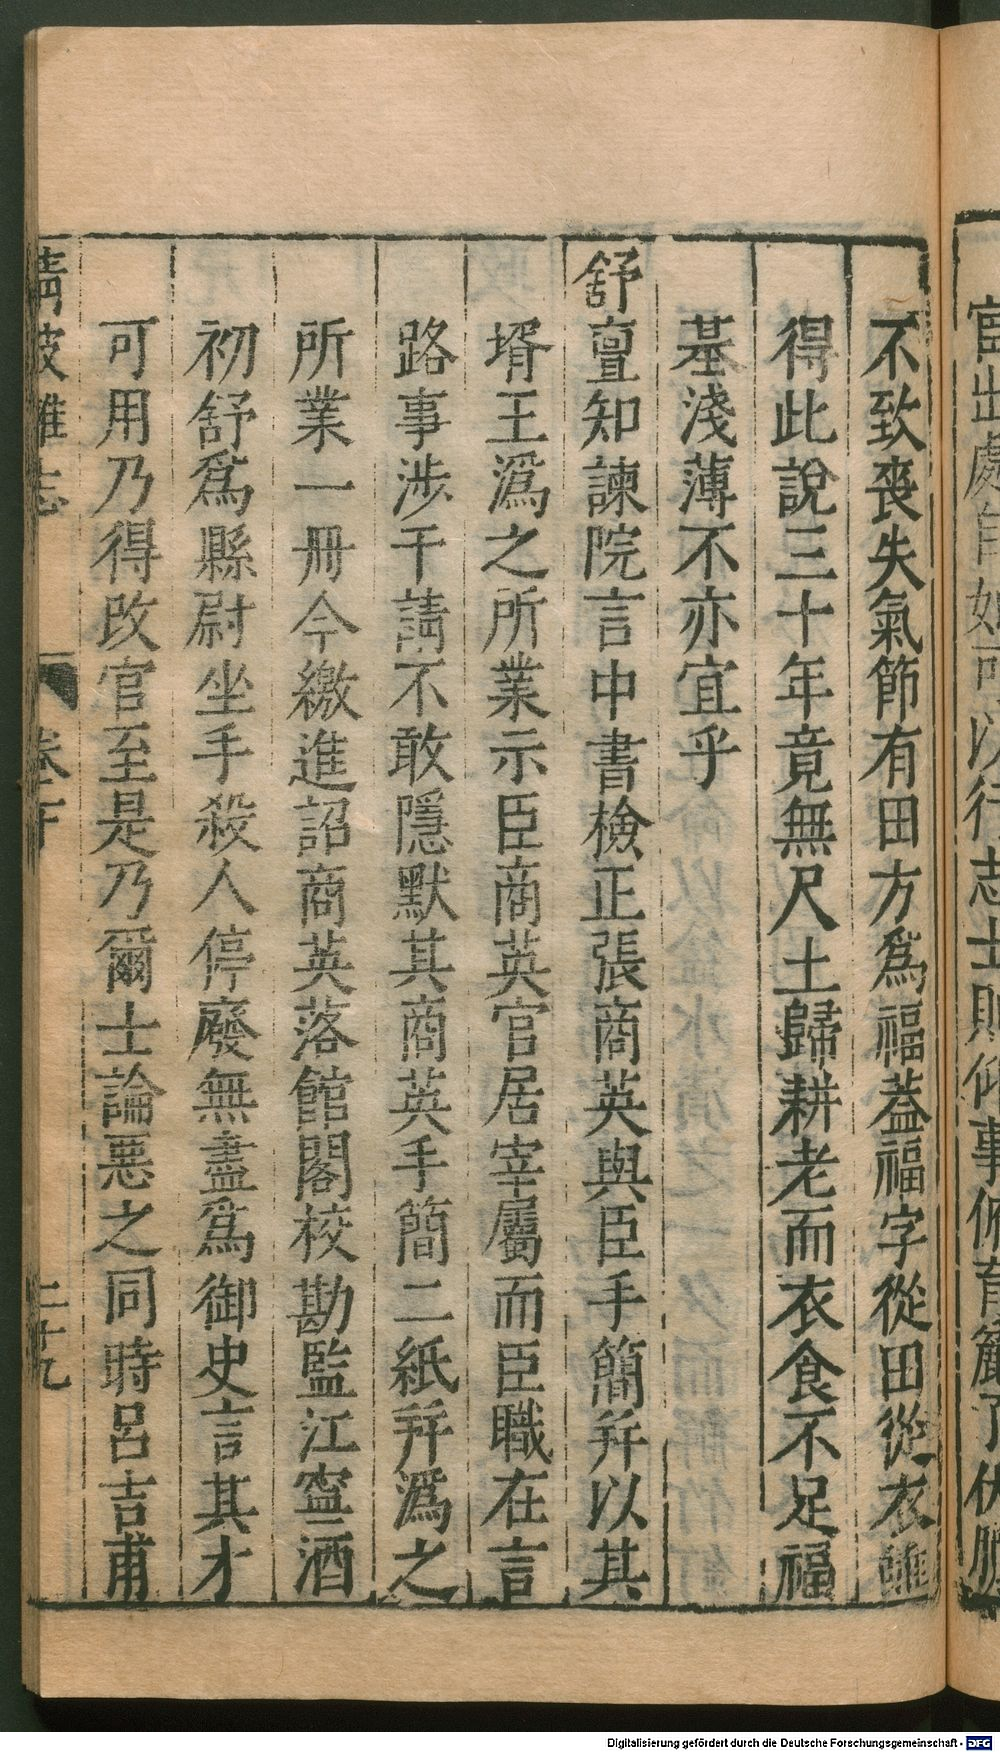 不致喪失氣節有田方爲福蓋福字從田從衣雖
得此說三十年竟無尺土歸耕老而衣食不足福
基淺薄不亦宜乎
舒亶知諫院言中書檢正張商英與臣手簡幷以其
壻王潙之所業示臣商英官居宰屬而臣職在言
路事涉干請不敢隱默其商英手簡二紙幷潙之
所業一冊今繳進詔商英落館閣校勘監江寍酒
初舒爲縣尉坐手殺人停廢無盡爲御史言其才
可用乃得改官至是乃爾士論惡之同時呂吉甫
清波雜志
卷下
二十九
以行志士則仰事俯育
Digitalisierung gefördert durch die Deutsche Forschungsgemeinschaft - DFG